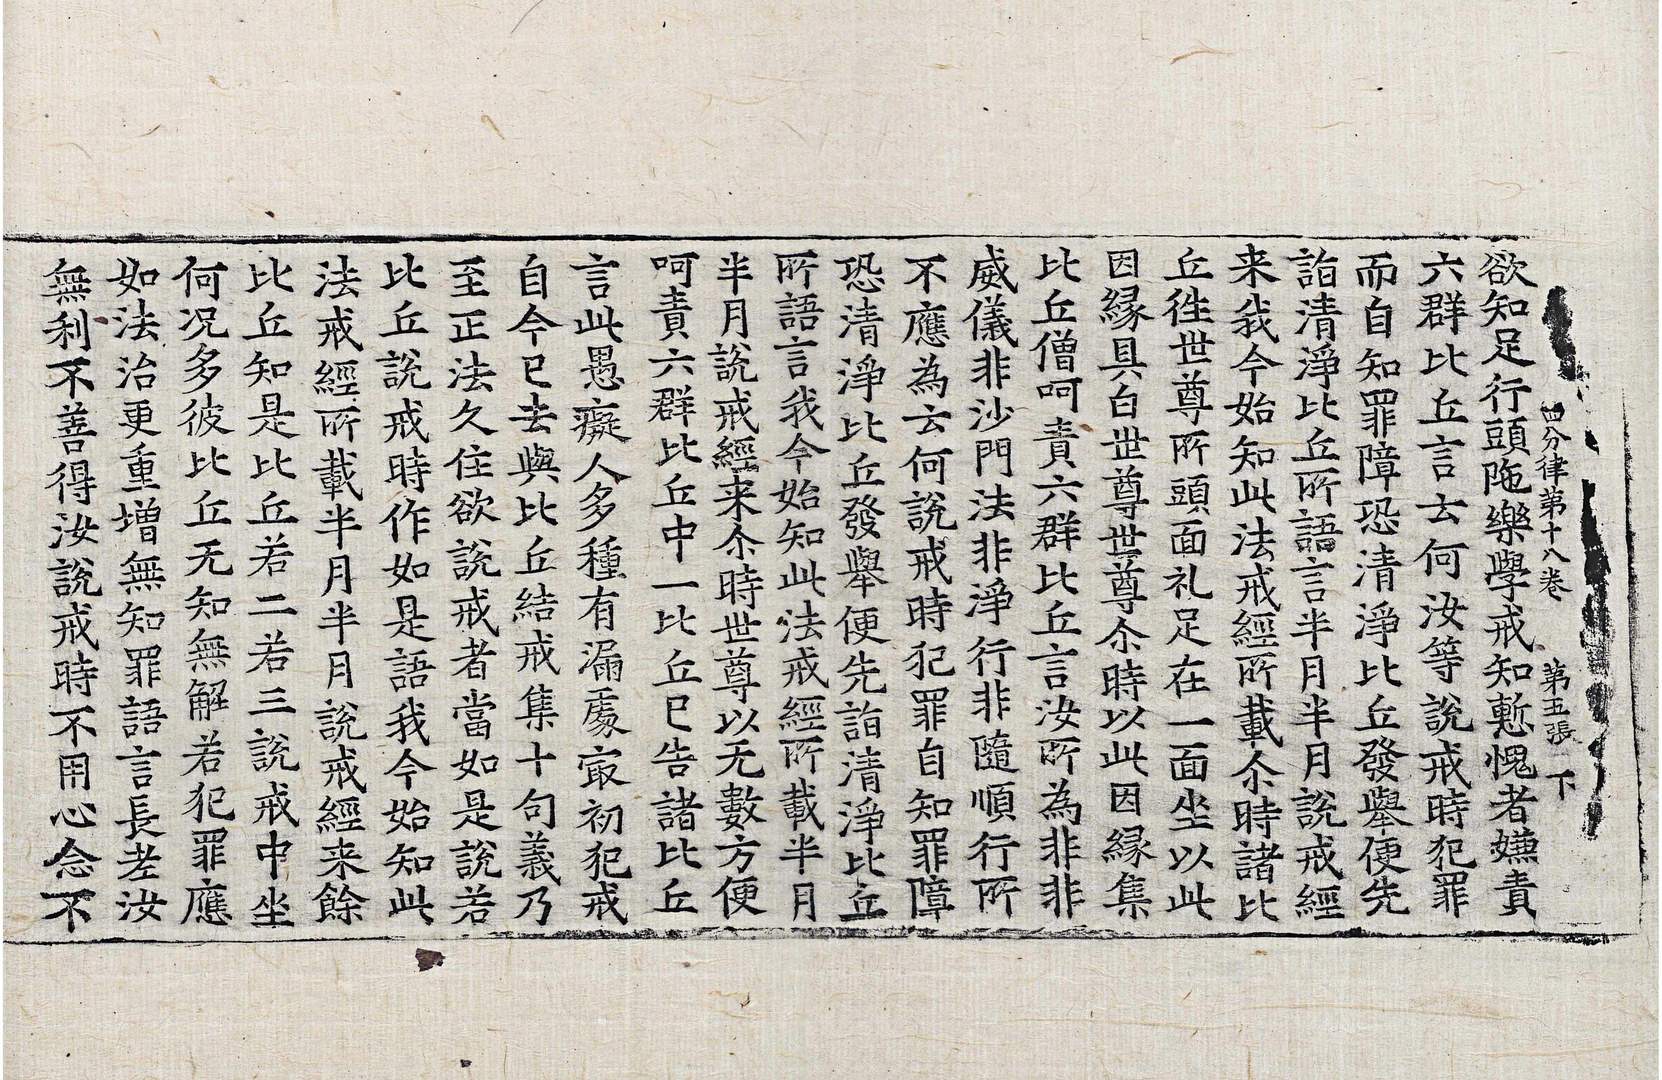 四分律第十八卷　第五張　下
欲知足行頭陁樂學戒知慙愧者嫌責
六群比丘言云何汝等說戒時犯罪
而自知罪障恐清淨比丘發舉便先
詣清淨比丘所語言半月半月說戒經
来我今始知此法戒經所載尒時諸比
丘徃世尊所頭面礼足在一面坐以此
因縁具白世尊世尊尒時以此因縁集
比丘僧呵責六群比丘言汝所為非非
威儀非沙門法非淨行非隨順行所
不應為云何說戒時犯罪自知罪障
恐清淨比丘發舉便先詣清淨比丘
所語言我今始知此法戒經所載半月
半月說戒經来尒時世尊以无數方便
呵責六群比丘中一比丘已告諸比丘
言此愚癡人多種有漏處㝡初犯戒
自今已去與比丘結戒集十句義乃
至正法久住欲說戒者當如是說若
比丘說戒時作如是語我今始知此
法戒經所載半月半月說戒經来餘
比丘知是比丘若二若三說戒中坐
何况多彼比丘无知無解若犯罪應
如法治更重增無知罪語言長老汝
無利不善得汝說戒時不用心念不